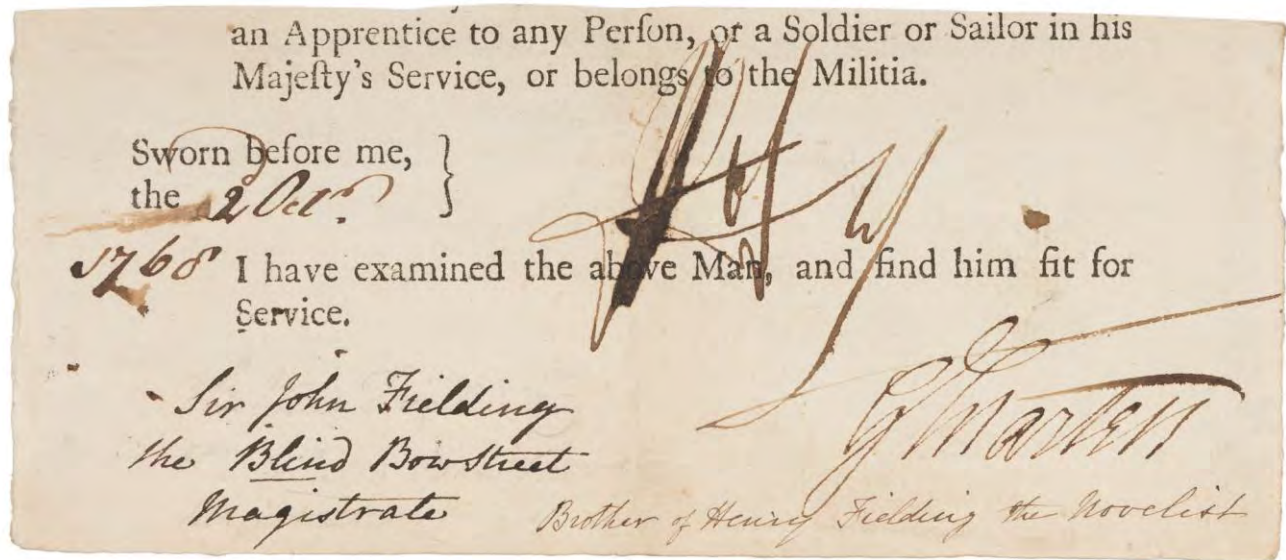 an Apprentice to any Perſon, or a Soldier or Sailor in his
Majeſty's Service, or belongs to the Militia.
Sworn before me,
the 2 Octr.
1768 I have examined the above Man, and find him fit for
Service.
G Marten
Sir John Fielding
the Blind Bow Street
Magistrate
Brother of Henry Fielding the Novelist